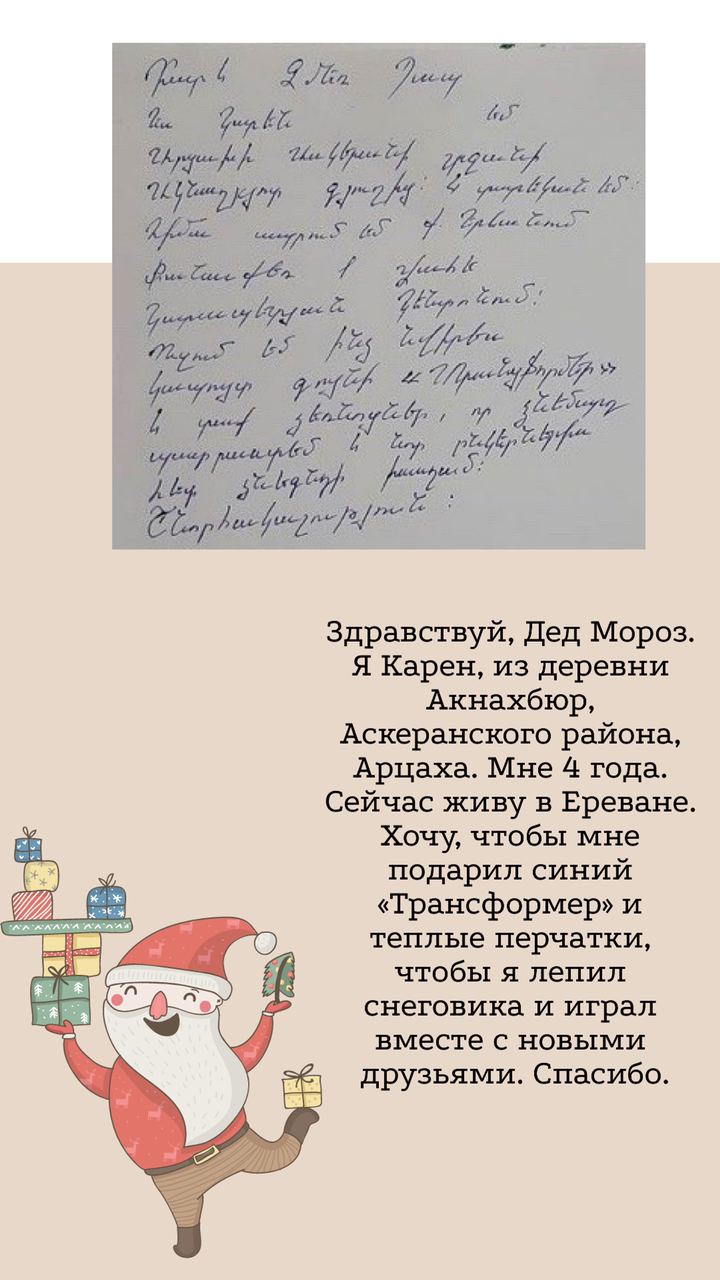 Բարև Ձմեռ Պապ
Ես Կարենն եմ
Արցախի Ասկերանի շրջանի
Ակնաղբյուր գյուղից: 4 տարեկան եմ:
Հիմա ապրում եմ ք. Երևանում
Ուզում եմ ինձ նվիրես
կապույտ գույնի «Տրանսֆորմեր»
և տաք ձեռնոցներ, որ ձնեմարդ
պատրաստեմ և նոր ընկերներիս
հետ ձնեգնդի խաղամ:
Շնորհակալություն:
Здравствуй, Дед Мороз.
Я Карен, из деревни
Акнахбюр,
Аскеранского района,
Арцаха. Мне 4 года.
Сейчас живу в Ереване.
Хочу, чтобы мне
подарил синий
«Трансформер» и
теплые перчатки,
чтобы я лепил
снеговика и играл
вместе с новыми
друзьями. Спасибо.